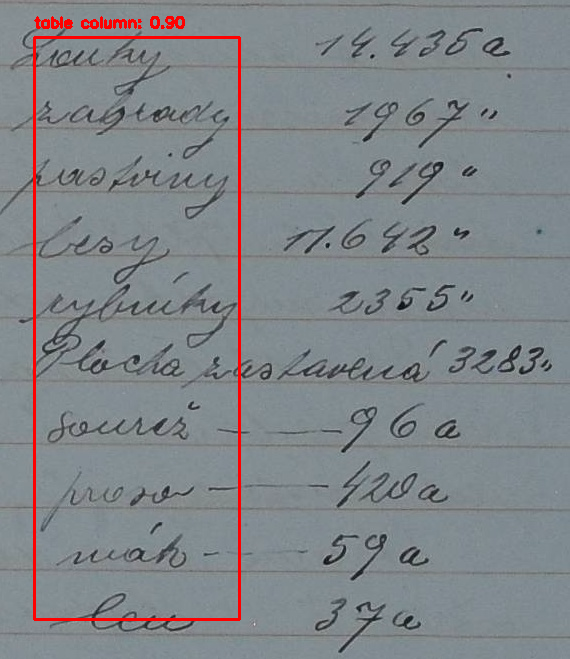 table column: 0.90
Louky 14.435 a
zahrady 1967 "
pastviny 919 "
lesy 11.642 "
rybníky 2355 "
Plocha zastavená 3283 "
souvež — 96 a
proso — 420 a
mák — 59 a
len 37 a